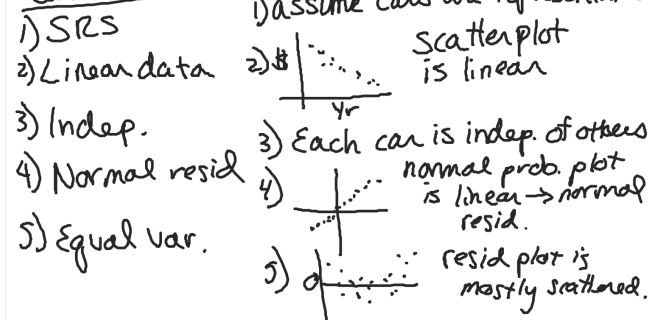 1) SRS
2) Linear data
3) Indep.
4) Normal resid
5) Equal var.
1) assume cars are
2) $
Yr
scatterplot
is linear
3) Each car is indep. of others
4)
normal prob. plot
is linear → normal
resid.
5) 0
resid plot is
mostly scattered.